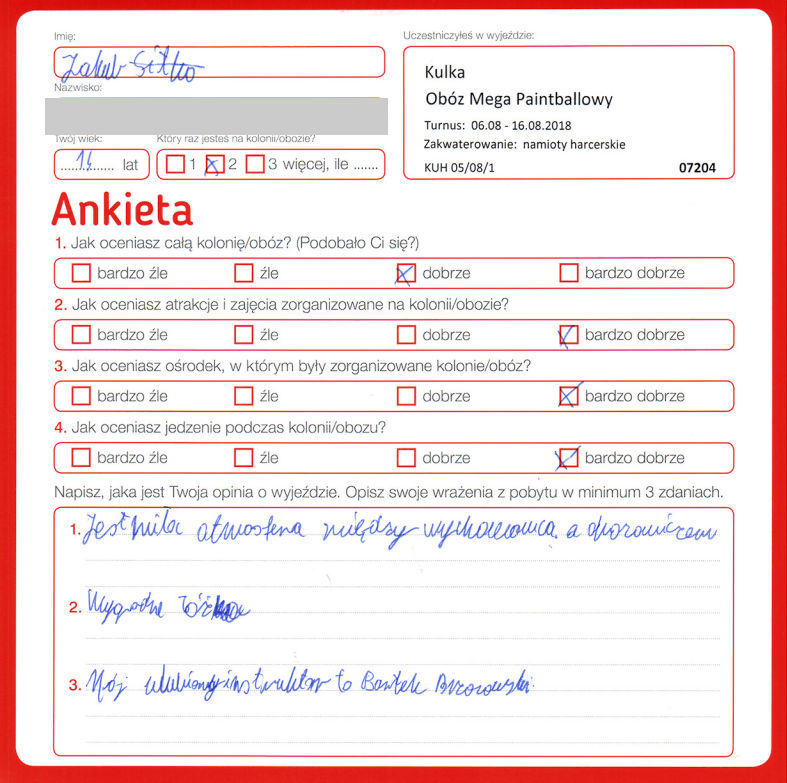 Imię:
Jakub Sitko
Nazwisko:
Twój wiek:
14 lat
Który raz jesteś na kolonii/obozie?
1 2 3 więcej, ile .......
Uczestniczyłeś w wyjeździe:
Kulka
Obóz Mega Paintballowy
Turnus: 06.08 - 16.08.2018
Zakwaterowanie: namioty harcerskie
KUH 05/08/1 07204
Ankieta
1. Jak oceniasz całą kolonię/obóz? (Podobało Ci się?)
bardzo źle źle dobrze bardzo dobrze
2. Jak oceniasz atrakcje i zajęcia zorganizowane na kolonii/obozie?
bardzo źle źle dobrze bardzo dobrze
3. Jak oceniasz ośrodek, w którym były zorganizowane kolonie/obóz?
bardzo źle źle dobrze bardzo dobrze
4. Jak oceniasz jedzenie podczas kolonii/obozu?
bardzo źle źle dobrze bardzo dobrze
Napisz, jaka jest Twoja opinia o wyjeździe. Opisz swoje wrażenia z pobytu w minimum 3 zdaniach.
1. Jest miła atmosfera między wychowawcą a
2. Wygodne
3. Mój ulubiony instruktor to Bartek Brzozowski.